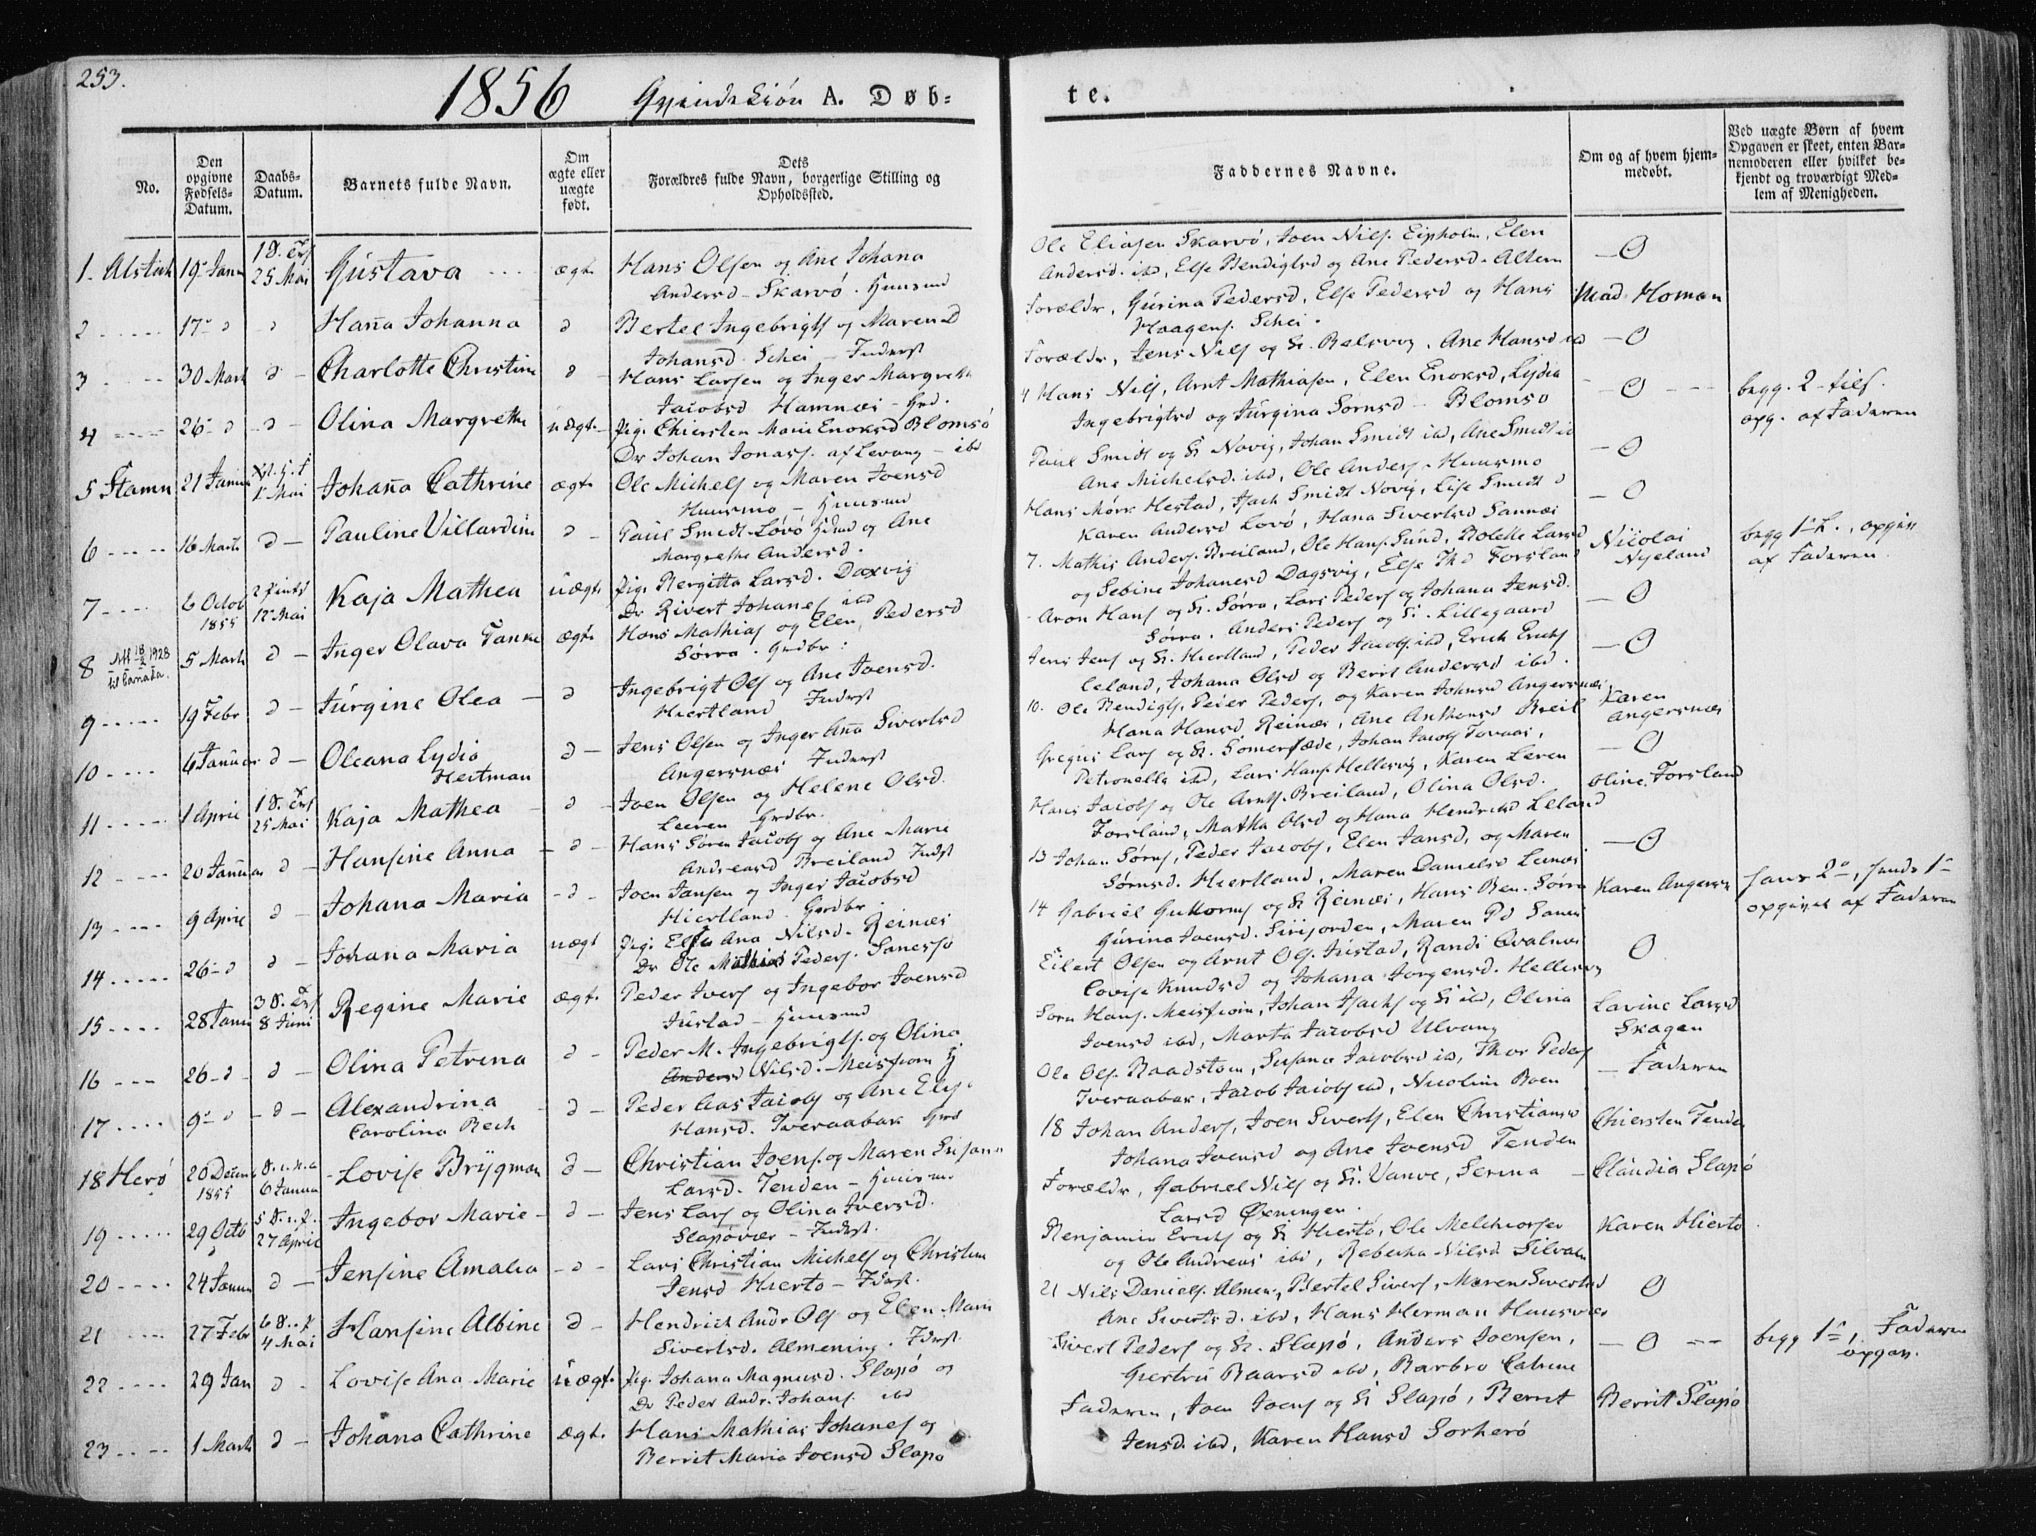 253.
1856 Qvindekiön A. Døb-
te.
No.
Den opgivne Fødsels-Datum.
Daabs-Datum.
Barnets fulde Navn.
Om ægte eller uægte født.
Dets Forældres fulde Navn, borgerlige Stilling og Opholdssted.
Faddernes Navne.
Om og af hvem hjem-
medøbt.
Ved uægte Børn af hvem
Opgaven er skeet, enten Bar-
nemoderen eller hvilket be-
kjendt og troværdigt Med-
lem af Menigheden.
1. Alstah 19 Janu 25 Mai Gustava ægt. Hans Olsen og Ane Johana
Andersd. Skarvø. Huusmd
Ole Eliasen Skarvø, Joen Nils. Eipholm, Elen
Andersd. ibd, Else Bendigtsd og Ane Pedersd. Altern — O
2 17 d d Hana Johanna d Bertel Ingebrigts og Maren
Johansd. Schei — Inderst
Forældr, Gurina Pedersd, Else Pedersd og Hans
Haagens. Schei. Mad. Homan
3 30 Mart d Charlotte Christine d Hans Larsen og Inger Margrethe
Jacobsd Hamnæs — Grd.
Forældr, Jens Nils og H. Belsvog, Ane Hansd ibd — O
4 26 d d Olina Margrethe uægt. Pig. Chiersten Marie Enoksd Blomsø
Dr Johan Jonass. af Levang — ibd
4 Hans Nils, Arnt Mathiasen, Elen Enoksd, Lydia
Ingebrigtsd og Jürgina Sørnsd — Blomsø — O — begg. 2 - tilf.
opg. af Faderen
5 Stamn 21 Janu 1 Mai Johana Cathrine ægt. Ole Michels og Maren Joensd
Huusmo — Huusmd
Paul Smidt og H. Novig, Johan Smidt ibd, Ane Smidt ibd
Ane Michelsd. ibd, Ole Anders. Huusmo — O
6 16 Marts d Pauline Villardine d Paul Smidt Løvø Huusmd og Ane
Margrethe Andersd.
Hans Mørk Hestad, Isach Smidt Novig, Lise Smidt d
Karen Andersd Lovø, Hana Siverlsd Sannæs — O
7 6 Octob
1855 2 Pintsd
12 Mai Kaja Mathea uægt. Pig. Bergitta Larsd. Daxvig
Dr Sivert Johanes ibd
7. Mathis Anders. Breiland, Ole Hans. Sund, Bolette Larsd
og Sebine Johanesd Dagsvig, Else Thd Forsland Nicolai
Nyeland begg 1ste L., opgivn
af Faderen.
8 Att 18/2 1928
til Canada. 5 Marts d Inger Olava Tanke ægt. Hans Mathias og Elen Pedersd
Sørra. Grdbr.
Aron Hans og H. Sørra, Lars Peders og Johana Jensd.
Sørra. Anders Peders og H. Lillegaard — O
9 19 Febr d Jürgine Olea d Ingebrigt Ols og Ane Joensd.
Hiertland Inderst
Jens Jens og H. Hiertland, Peder Jacobs ibd, Erich Erichs
Leland, Johana Olsd og Berit Andersd ibd. — O
10 6 Januar d Oleana Lydia
Heitman d Jens Olsen og Inger Ana Siverlsd
Angersnæs Inderst
10. Ole Bendigts, Peder Peders, og Karen Johnsd Angersnæs,
Hana Hansd. Reinæs, Ane Anthonsd Breil Karen
Angersnæs
11 1 April 25 Mai Kaja Mathea d Joen Olsen og Helene Olsd.
Leeren Grdbr.
Gregus Lars og H. Sømersæde, Johan Jacobs Tovaas,
Petronella ibd, Lars Hans Hellesvig, Karen Leren — O
12 20 Januar d Hansine Anna d Hans Søren Jacobs og Ane Marie
Andreasd Breiland Indst
Hans Jacobs og Ole Arnts. Breiland, Olina Olsd.
Forsland, Matha Olsd og Hana Hendriksd Leland Oline Forsland
13 9 April d Johana Maria d Joen Jansen og Inger Jacobsd
Hiertland. Grdbr.
13 Johan Sørns, Peder Jacobs, Elen Jansd, og Maren
Sørnsd. Hiertland, Maren Danielsd Leinæs — O
14 26 d d Johana Maria uægt Pig. Else Ana Nilsd. Reinæs
Dr Ole Mathias Peders. Sanesjø
14 Gabriel Guttorms og H. Reinæs, Hans Ben. Sørra
Gurina Joensd. Sirijorden, Maren Pd Sanen Karen Angersn hans 2, hends 1
opgivet af Faderen
15 28 Janu 8 Juni Regine Marie ægt. Peder Ivers og Ingebor Joensd
Justad — Huusmd
Eilert Olsen og Arnt Ols. Justad, Randi Qvalnæs
Lovise Knudsd og Johana Jørgensd. Hellesvig O
16 26 d d Olina Petrina d Peder M. Ingebrigts. og Olina
Andersd Nilsd. Meisfiorn H
Sørn Hans. Meisfiorn, Johan Isachs og H. ibd, Olina
Joensd ibd, Marta Jacobsd Ulvang Lavine Larsd
Skagen
17 9 d d Alexandrina
Carolina Bech d Peder Aas Jacobs og Ane Else
Hansd. Tveraabak Grd
Ole Ols. Baadstøm, Susana Jacobsd ib, Thor Peders
Tveraabak, Jacob Jacobs ibd, Nicoline Boen — Faderen
18 Herø 26 Decem
1855 6 Janua Lovise Brygman d Christian Joens. og Maren Susana
Larsd. Tenden — Huusmd
18 Johan Anders, Joen Siverts, Elen Christiansd
Johana Joensd og Ane Joensd Tenden Chiersten Tenden
19 29 Octb 27 April Ingebor Marie d Jens Lars og Olina Iversd.
Slapøvær — Inderst.
Forældr, Gabriel Nils og H. Vanve, Serina
Larsd Øxningen. Claudia Slapø
20 24 Janu d Jensine Amalia d Lars Christian Michels og Christin
Jensd Hiertø — Idrst.
Benjamin Erichs og H Hiertø, Ole Melchiorsen
og Ole Andreas ibd, Rebecka Nilsd Silvalen Karen Hiertø
21 27 Febr 4 Mai Hansine Albine d Hendrich Andr Ols og Elen Marie
Sivertsd. Almening. Idrst.
21 Nils Daniels. Almen., Bertel Sivers, Maren Sivertsd
Ane Sivertsd. ibd, Hans Herman Huusvær O
22 29 Jan d Lovise Ana Marie uægt. Pig. Johana Magnusd. Slapø og
Dr Peder Andr. Johans. ibd
Sivert Peders og H. Slapø, Anders Joensen,
Giertru Baarsd ibd, Barbro Catrine — O — begg 1, Faderen
opgav.
23 1 Marts d Johana Cathrine ægt. Hans Mathias Johanes og
Berrit Maria Joensd Slapø
Faderen, Joen Joens og H Slapø, Berrit
Jensd. ibd, Karen Hansd Sørherø Berrit Slapø